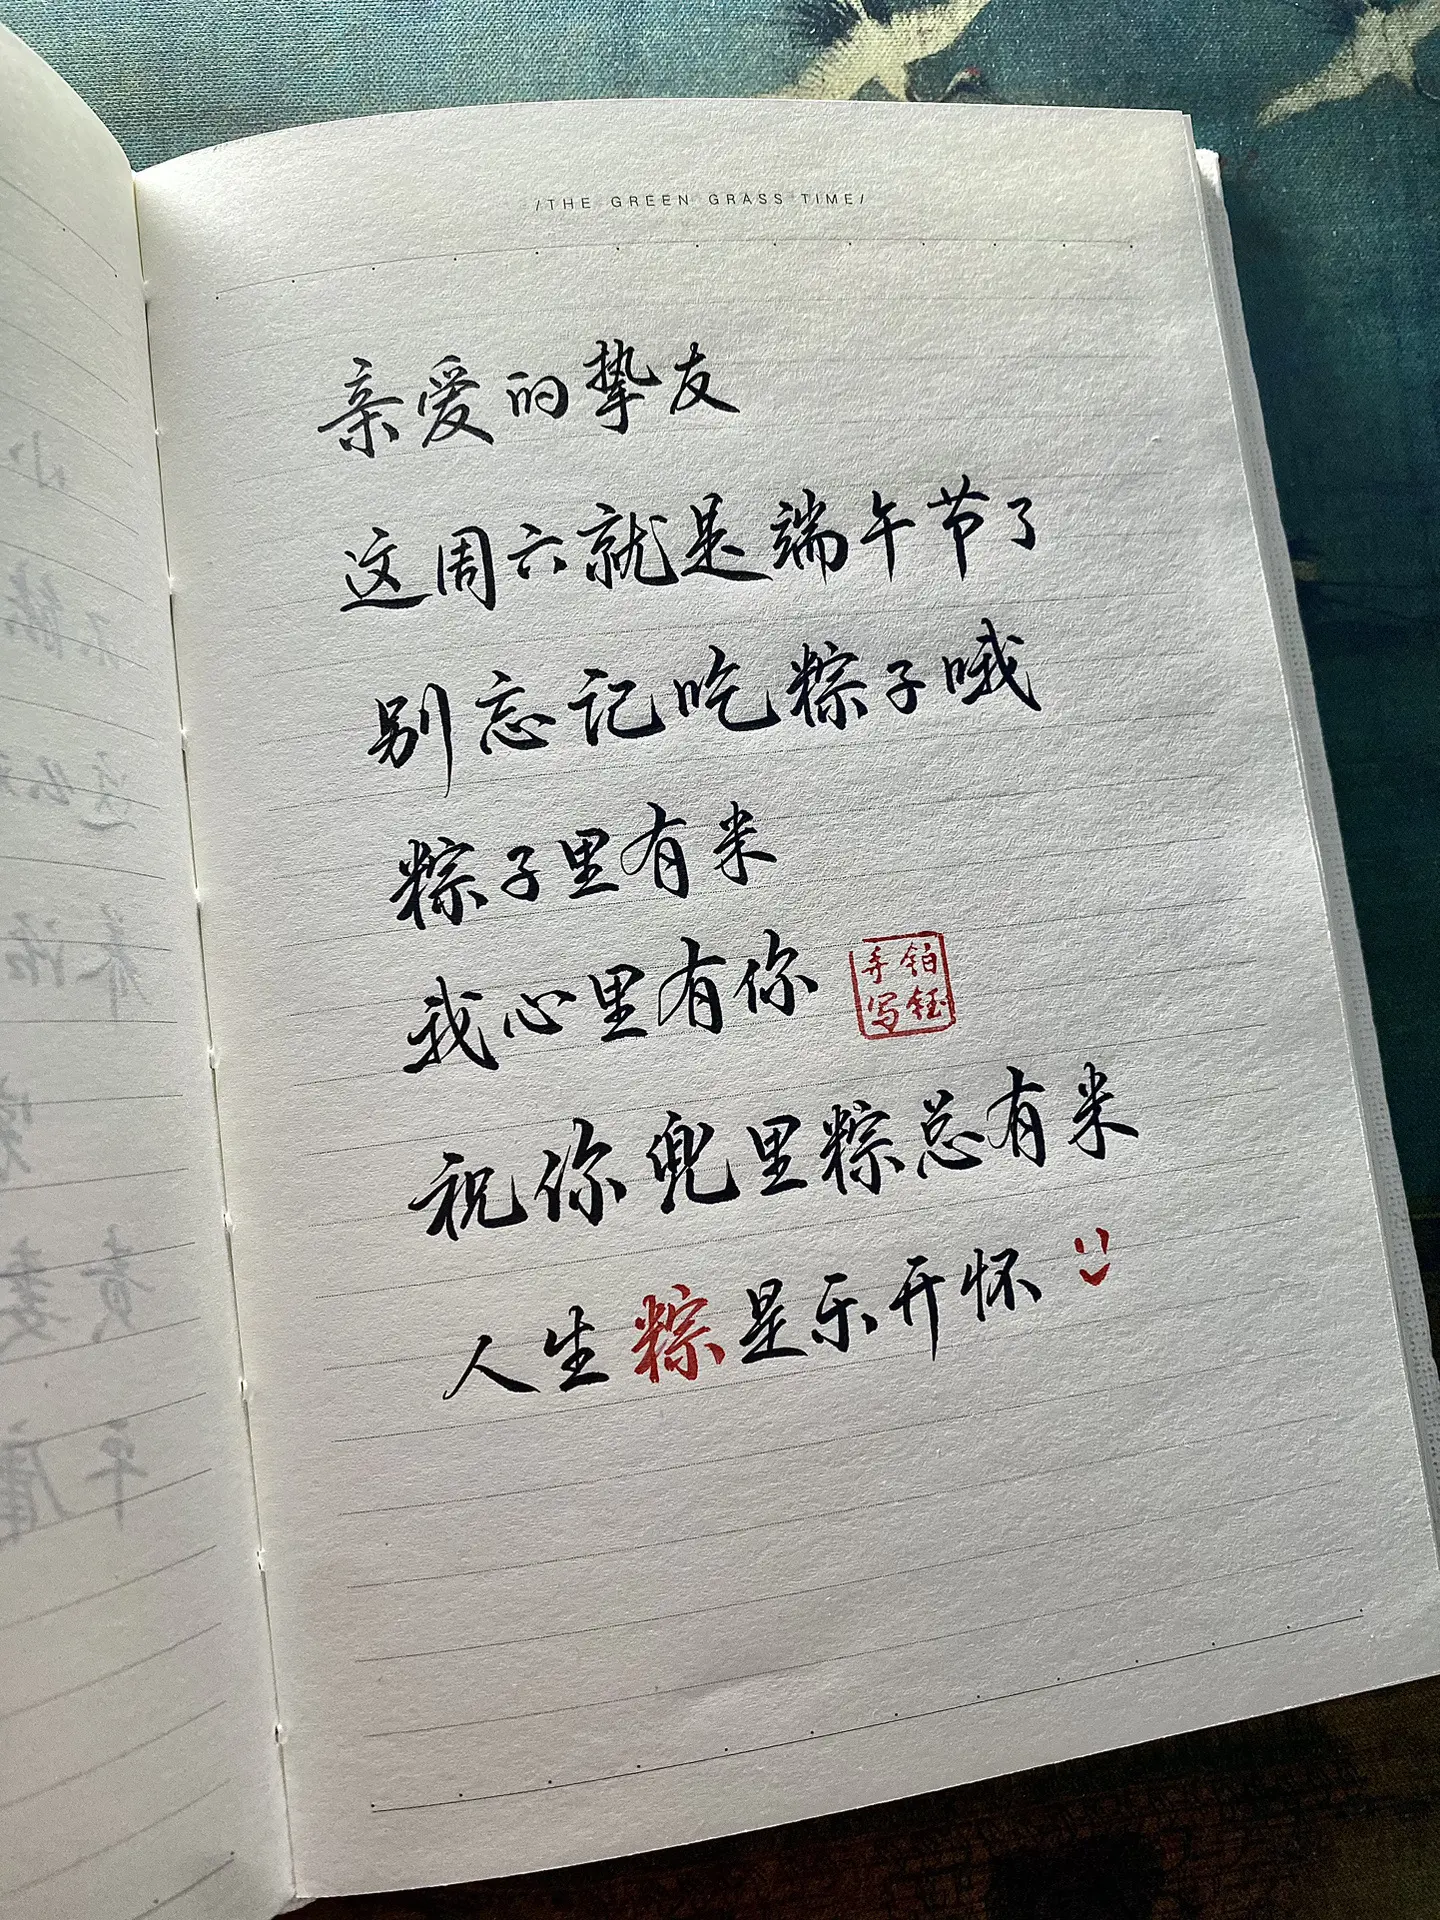 /THE GREEN GRASS TIME/
亲爱的挚友
这周六就是端午节了
别忘记吃粽子哦
粽子里有米
我心里有你
铂钰
手写
祝你兜里粽总有米
人生粽是乐开怀